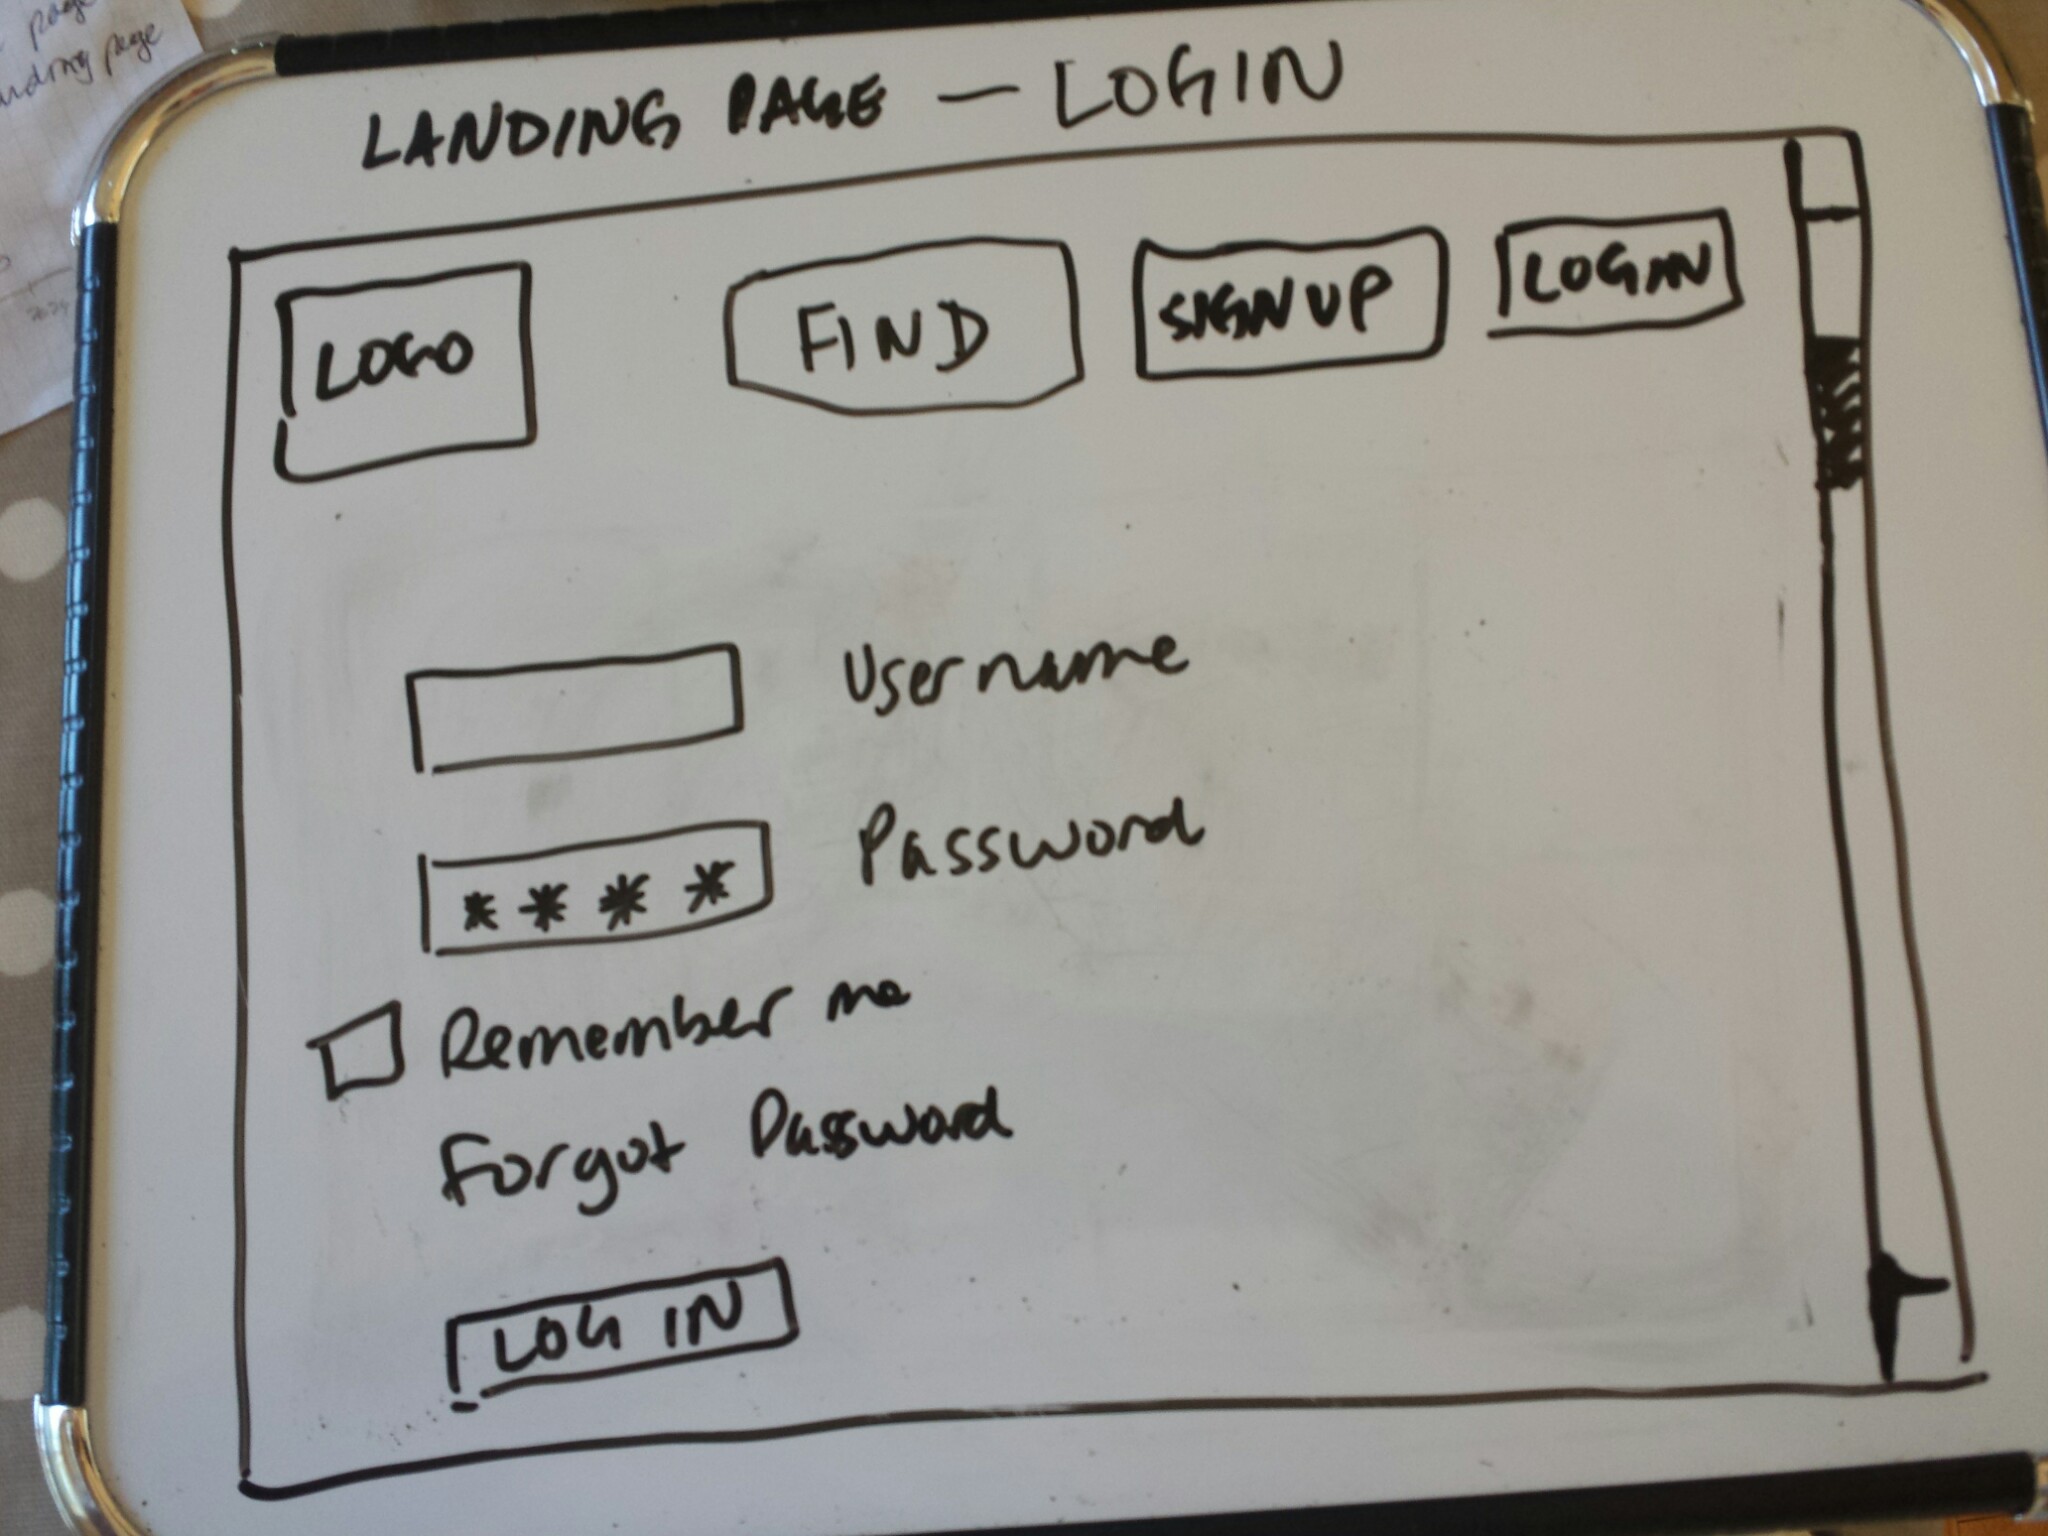 page
page
LANDING PAGE — LOGIN
LOGO FIND SIGN UP LOGIN
Username
**** Password
Remember me
Forgot Password
LOG IN